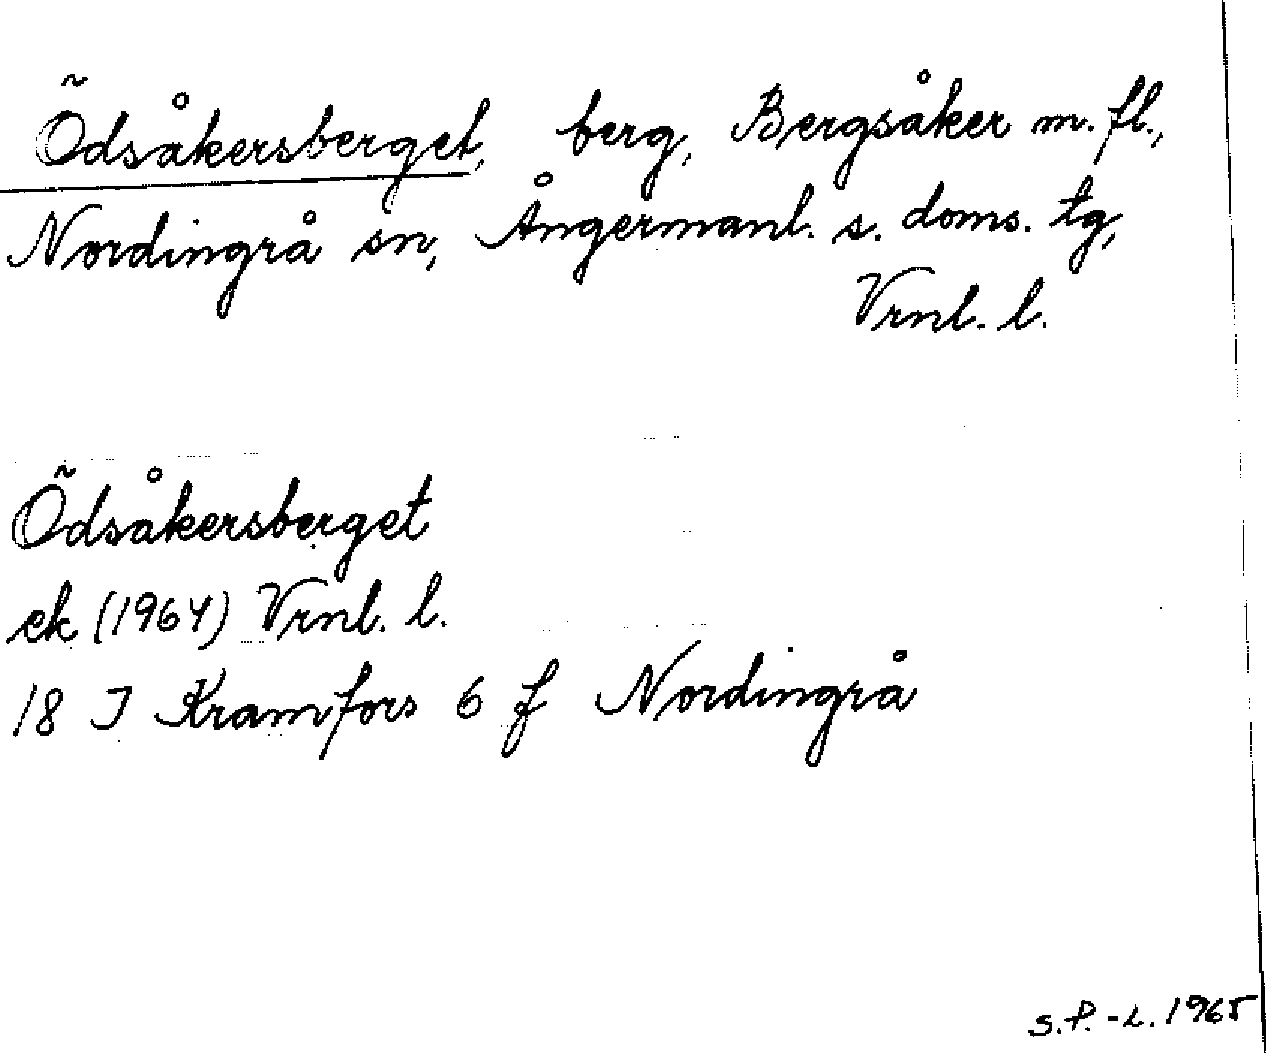 Ödsåkersberget, berg, Bergsåker m. fl.,
Nordingrå sn, Ångermanl. s. doms. tg,
Vrnl. l.
Ödsåkersberget
ek (1964) Vrnl. l.
18 J Kramfors 6 f Nordingrå
S.P.-L. 1965